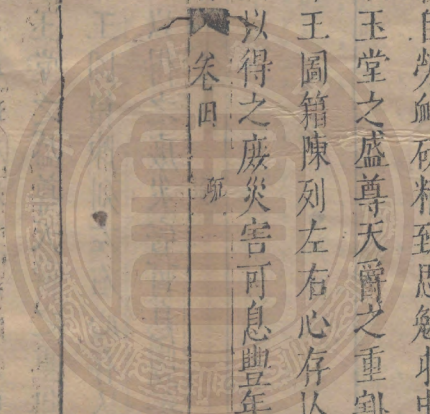 研精致思勉
玉堂之盛尊天爵之重割
王圖籍陳列左右心存
以得之庻災害可息豐年
卷四 疏